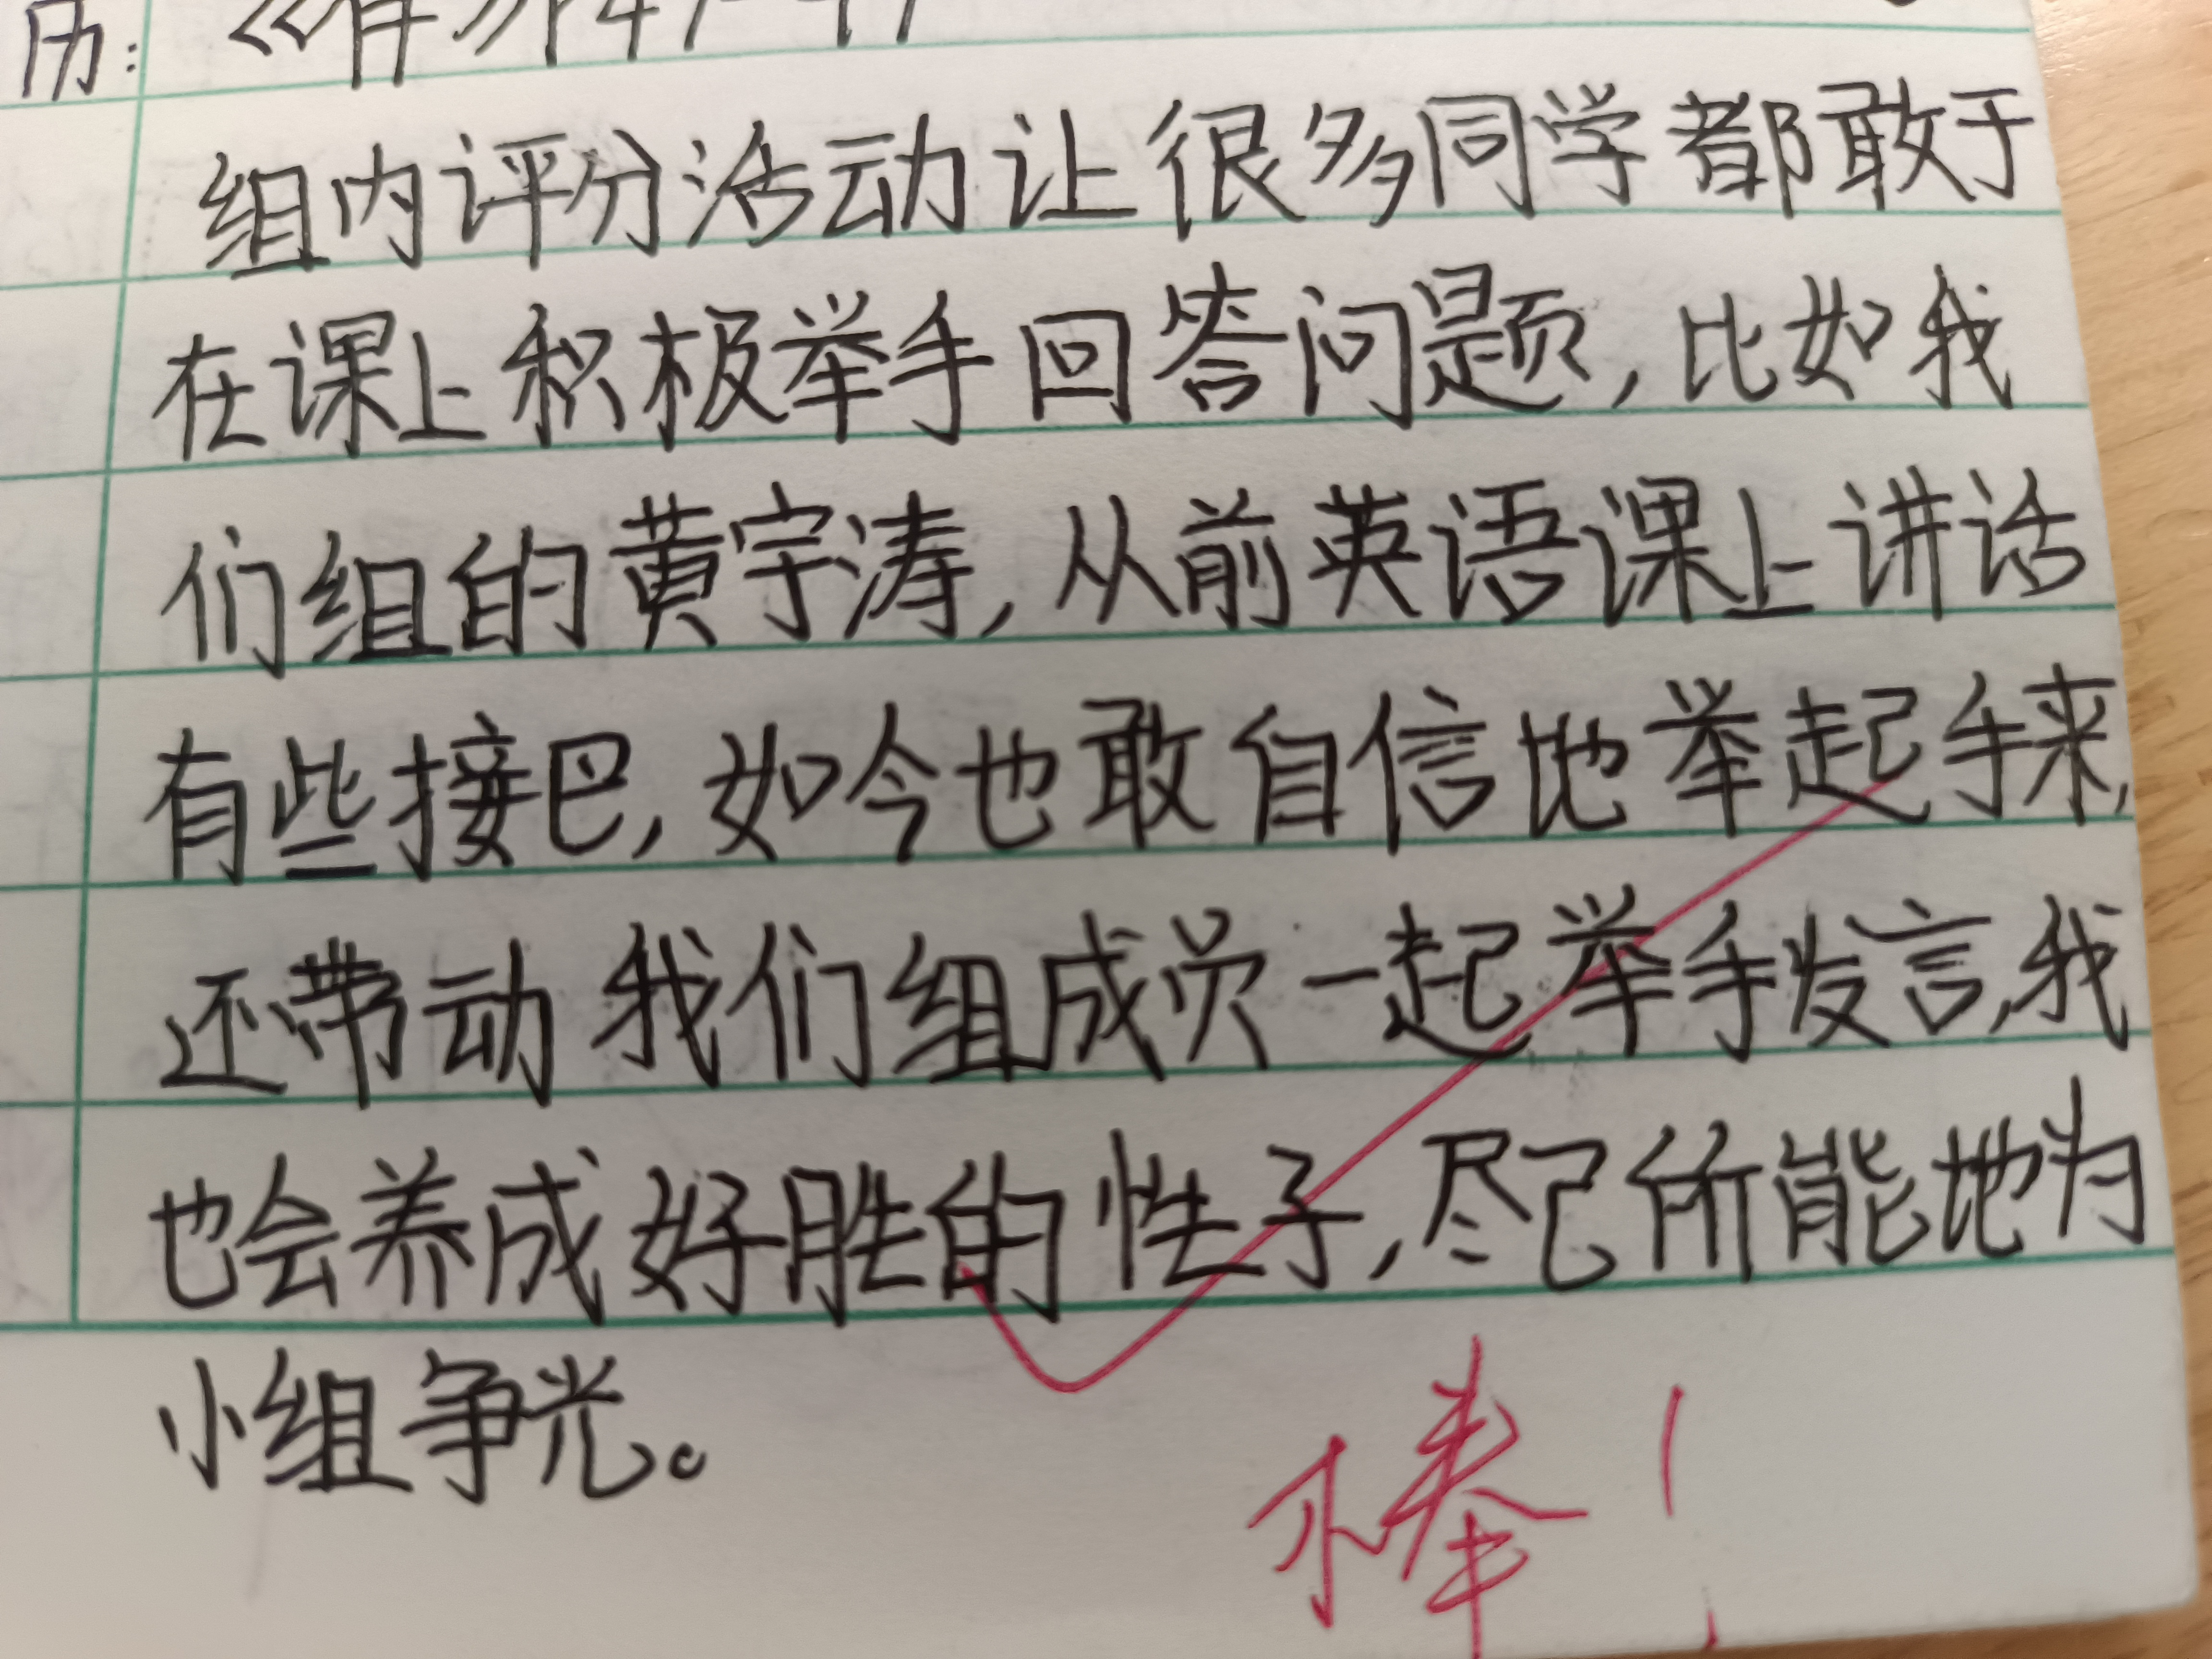 组内评分活动让很多同学都敢于
在课上积极举手回答问题，比如我
们组的黄宇涛，从前英语课上讲话
有些接巴，如今也敢自信地举起手来，
还带动我们组成员一起举手发言，我
也会养成好胜的性子，尽己所能地为
小组争光。
棒！